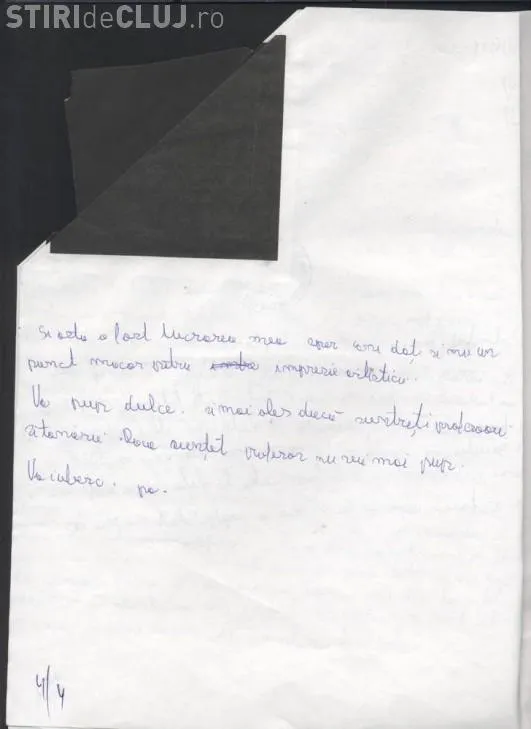 STIRIdeCLUJ.ro
Și asta a fost lucrarea mea sper căm dați și mie un
punct macar pentru impresie artistică.
Va pup dulce. și mai ales dacă sunteți profesoare
și tanără. Daca sunteți profesor nu vă mai pup.
Va iubesc. pa.
4/4